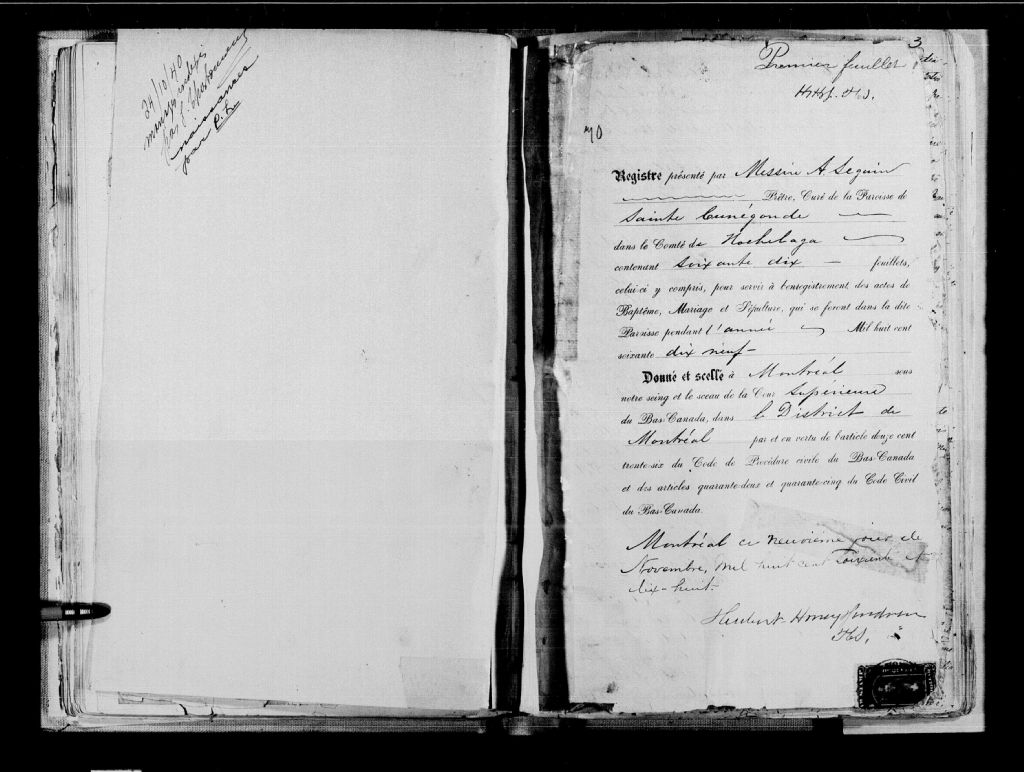 24/10/40
naissances
par
3
Premier feuillet
70
Registre présenté par Messire A Seguin
Prêtre, Curé de la Paroisse de
Sainte Cunégonde
dans le Comté de Hochelaga
contenant soixante dix feuillets,
celui-ci y compris, pour servir à l'enregistrement des actes de
Baptême, Mariage et Sépulture, qui se feront dans la dite
Paroisse pendant l'année Mil huit cent
soixante dix neuf
Donné et scellé à Montréal sous
notre seing et le sceau de la Cour Supérieure
du Bas-Canada, dans le District de
Montréal par et en vertu de l'article douze cent
trente-six du Code de Procédure civile du Bas-Canada
et des articles quarante-deux et quarante-cinq du Code Civil
du Bas-Canada.
Montréal ce neuvième jour de
Novembre, mil huit cent soixante et
dix-huit.
Honey Gendron